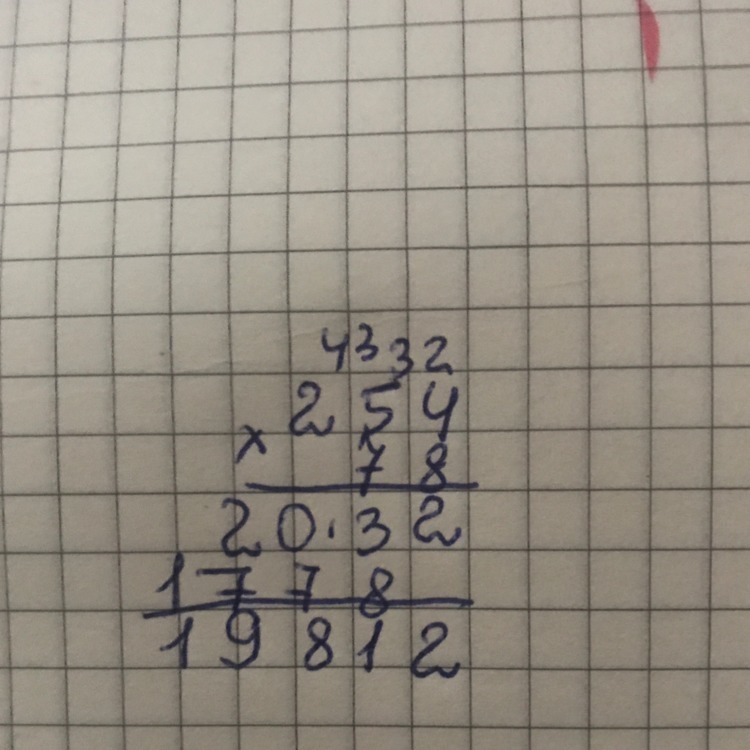 4 3 3 2
2 5 4
×
7 8
2 0 . 3 2
1 7 7 8
1 9 8 1 2